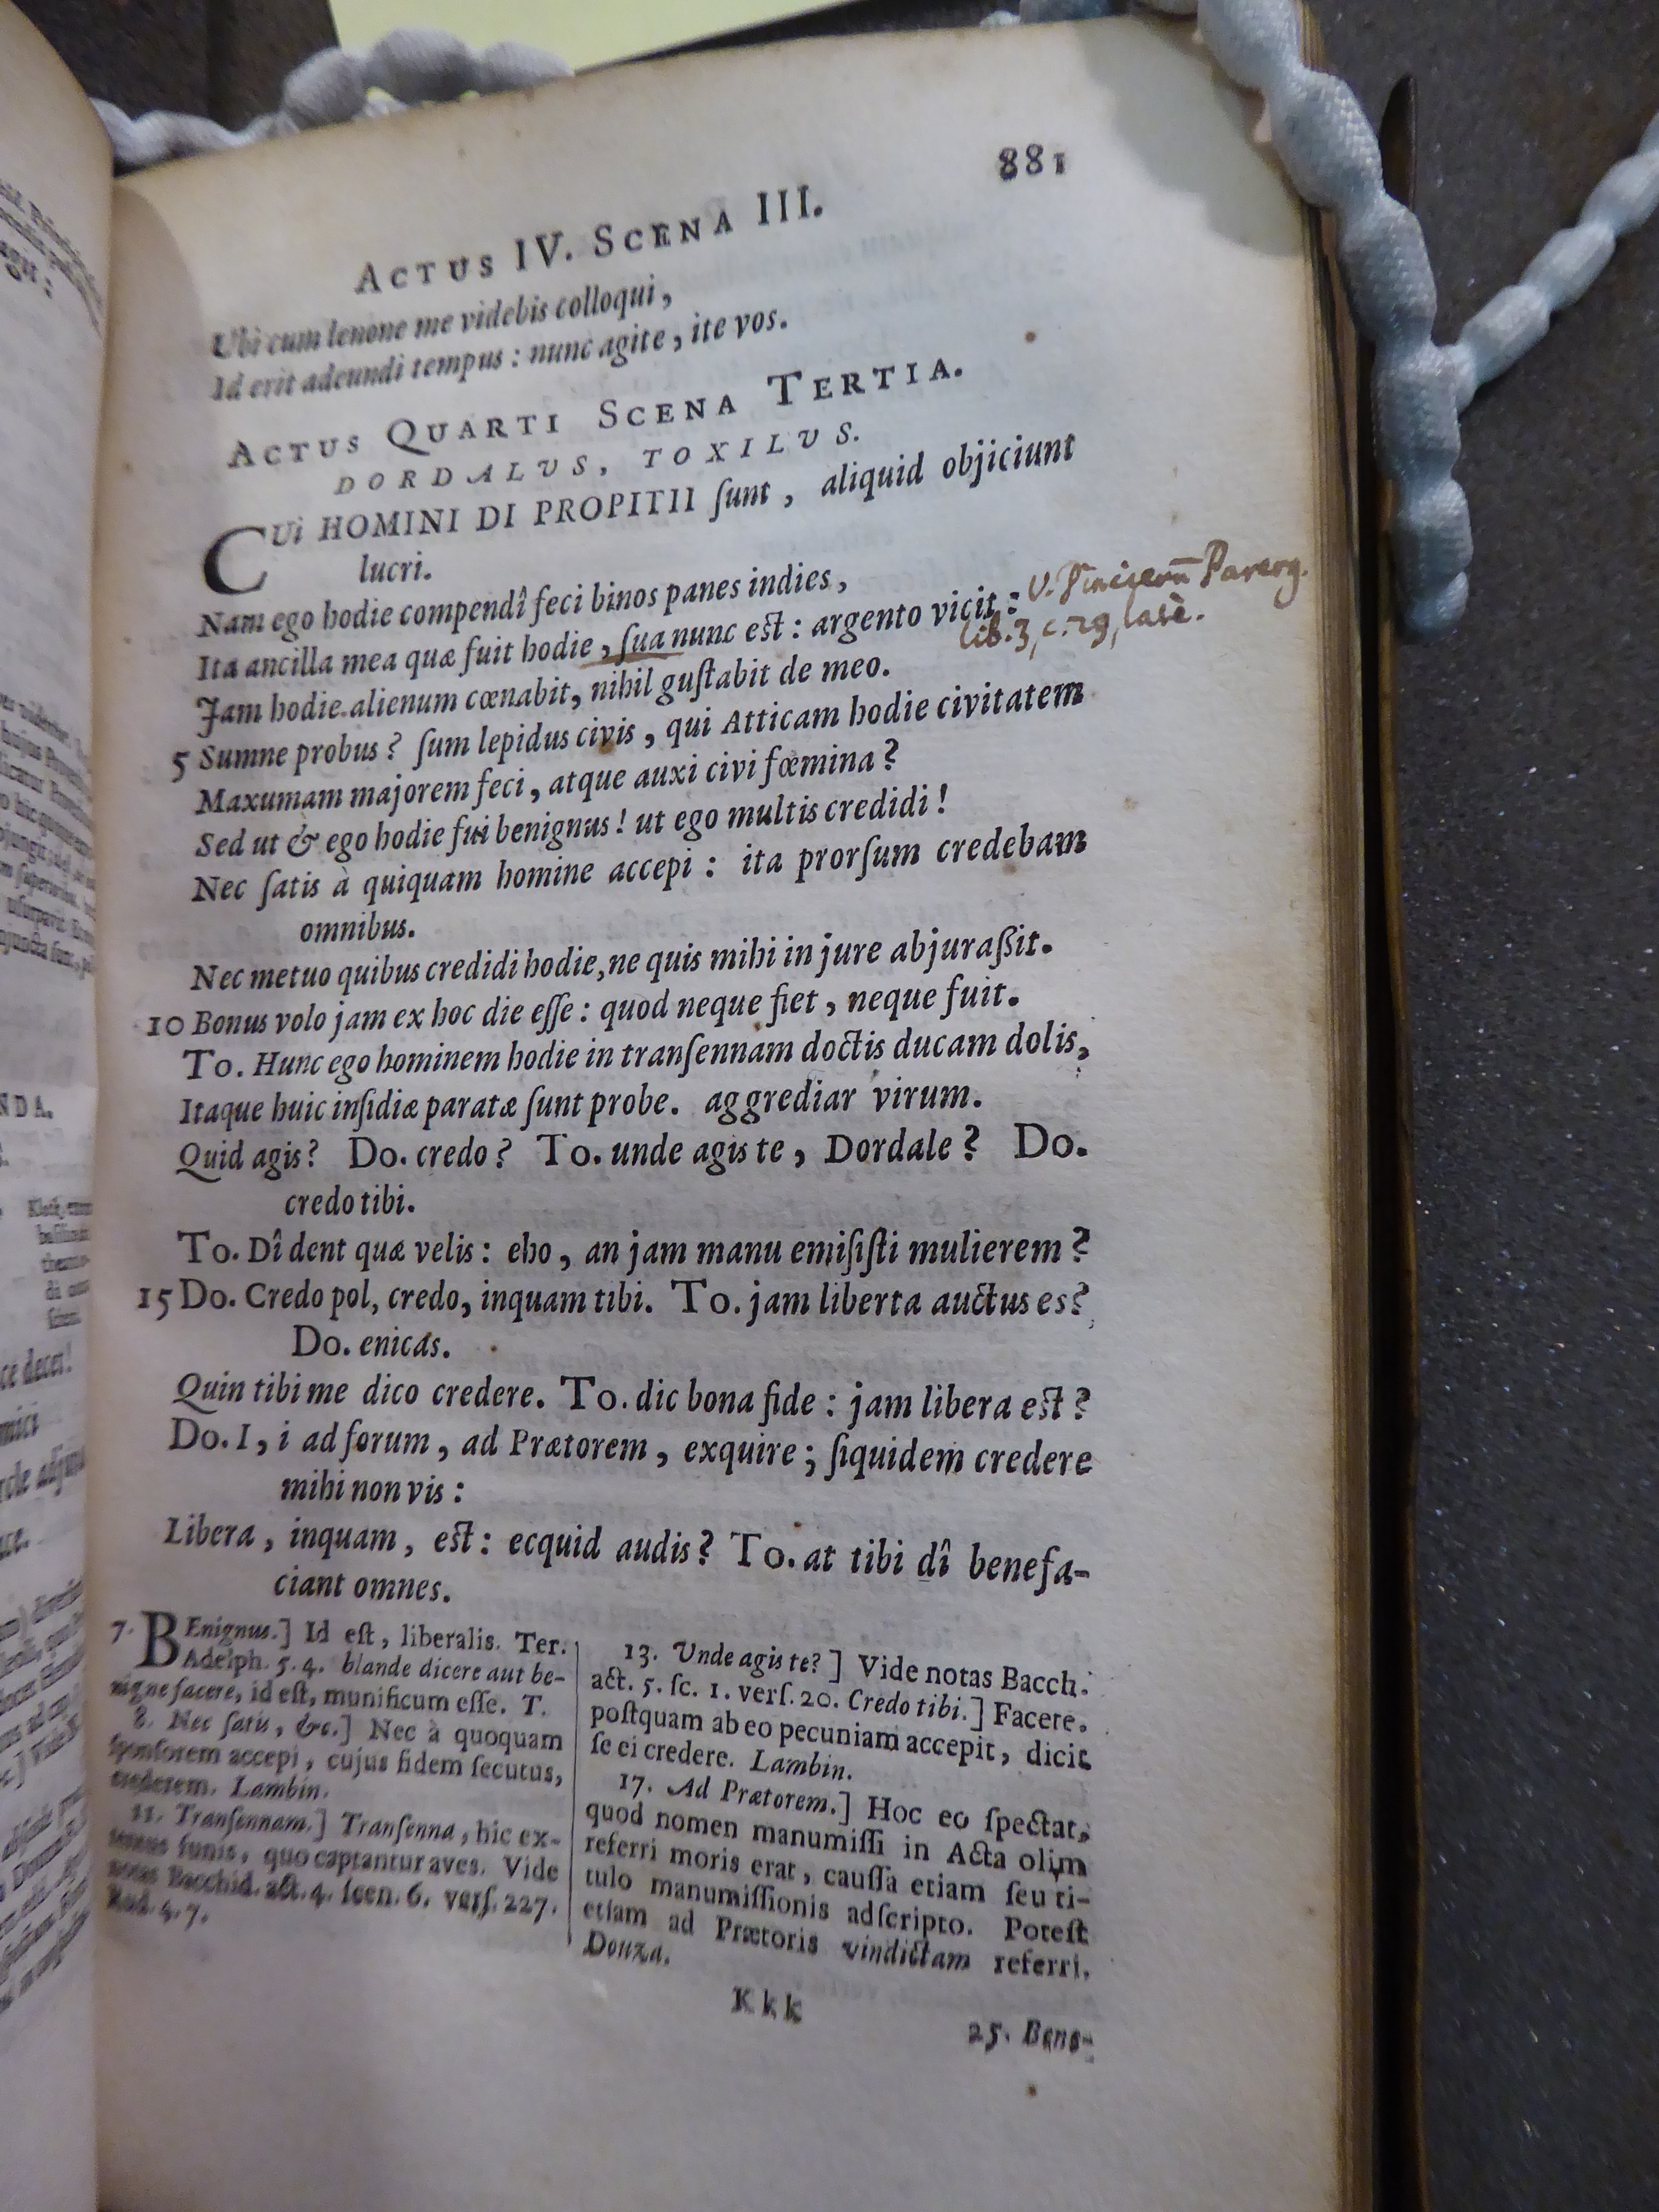 881
ACTUS IV. SCENA III.
Ubi cum lenone me videbis colloqui,
Id erit adeundi tempus: nunc agite, ite vos.
ACTUS QUARTI SCENA TERTIA.
DORDALVS, TOXILVS.
CUi HOMINI DI PROPITII ſunt, aliquid objiciunt
lucri.
Nam ego hodie compendî feci binos panes indies,
Ita ancilla mea quæ fuit hodie, ſua nunc eſt: argento vicit:
V. Pincierū Parerg.
lib. 3, c. 29, latè.
Jam hodie alienum cœnabit, nihil guſtabit de meo.
5 Sumne probus? ſum lepidus civis, qui Atticam hodie civitatem
Maxumam majorem feci, atque auxi civi fœmina?
Sed ut & ego hodie fui benignus! ut ego multis credidi!
Nec ſatis à quiquam homine accepi: ita prorſum credebam
omnibus.
Nec metuo quibus credidi hodie, ne quis mihi in jure abjuraßit.
10 Bonus volo jam ex hoc die eſſe: quod neque fiet, neque fuit.
To. Hunc ego hominem hodie in tranſennam doctis ducam dolis,
Itaque huic inſidiæ paratæ ſunt probe. aggrediar virum.
Quid agis? Do. credo? To. unde agis te, Dordale? Do.
credo tibi.
To. Dî dent quæ velis: eho, an jam manu emiſiſti mulierem?
15 Do. Credo pol, credo, inquam tibi. To. jam liberta auctus es?
Do. enicas.
Quin tibi me dico credere. To. dic bona fide: jam libera eſt?
Do. I, i ad forum, ad Prætorem, exquire; ſiquidem credere
mihi non vis:
Libera, inquam, eſt: ecquid audis? To. at tibi dî benefa-
ciant omnes.
7. BEnignus.] Id eſt, liberalis. Ter.
Adelph. 5. 4. blande dicere aut be-
nigne facere, id eſt, munificum eſſe. T.
8. Nec ſatis, &c.] Nec à quoquam
ſponſorem accepi, cujus fidem ſecutus,
crederem. Lambin.
11. Tranſennam.] Tranſenna, hic ex-
tentus funis, quo captantur aves. Vide
notas Bacchid. act. 4. ſcen. 6. verſ. 227.
Rud. 4. 7.
13. Unde agis te?] Vide notas Bacch.
act. 5. ſc. 1. verſ. 20. Credo tibi.] Facere.
poſtquam ab eo pecuniam accepit, dicit
ſe ei credere. Lambin.
17. Ad Prætorem.] Hoc eo ſpectat,
quod nomen manumiſſi in Acta olim
referri moris erat, cauſſa etiam ſeu ti-
tulo manumiſſionis adſcripto. Poteſt
etiam ad Prætoris vindictam referri.
Douza.
Kkk
25. Bene-